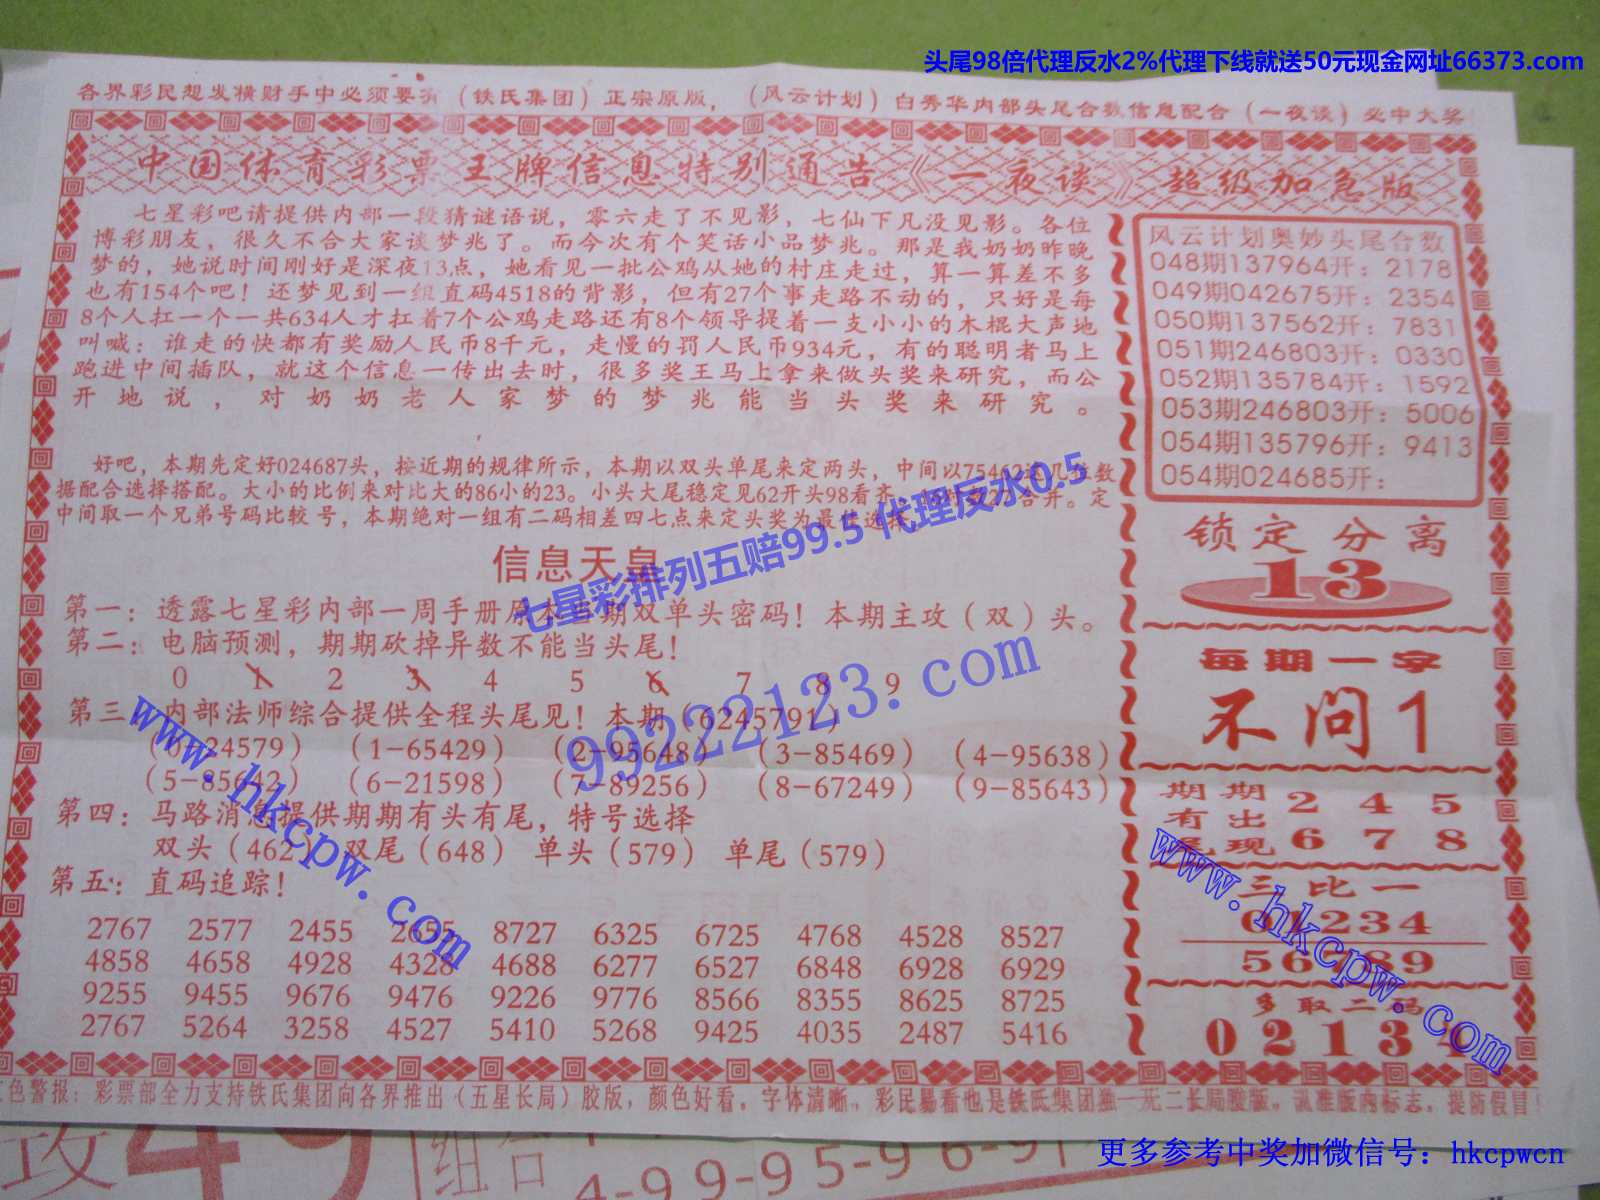 头尾98倍代理反水2%代理下线就送50元现金网址66373.com
各界彩民想发横财手中必须要有（铁氏集团）正宗原版，（风云计划）白秀华内部头尾合数信息配合（一夜谈）必中大奖
中国体育彩票王牌信息特别通告《一夜谈》超级加急版
七星彩吧请提供内部一段猜谜语说，零六走了不见影，七仙下凡没见影。各位
博彩朋友，很久不合大家谈梦兆了。而今次有个笑话小品梦兆。那是我奶奶昨晚
梦的，她说时间刚好是深夜13点，她看见一批公鸡从她的村庄走过，算一算差不多
也有154个吧！还梦见到一组直码4518的背影，但有27个事走路不动的，只好是每
8个人扛一个一共634人才扛着7个公鸡走路还有8个领导提着一支小小的木棍大声地
叫喊：谁走的快都有奖励人民币8千元，走慢的罚人民币934元，有的聪明者马上
跑进中间插队，就这个信息一传出去时，很多奖王马上拿来做头奖来研究，而公
开地说，对奶奶老人家梦的梦兆能当头奖来研究。
好吧，本期先定好024687头，按近期的规律所示，本期以双头单尾来定两头，中间以75462这几步数
据配合选择搭配。大小的比例来对比大的86小的23。小头大尾稳定见62开头98看齐。
合并。定
中间取一个兄弟号码比较号，本期绝对一组有二码相差四七点来定头奖为最佳选择
七星彩排列五赔99.5 代理反水0.5
信息天皇
第一：透露七星彩内部一周手册原本当期双单头密码！本期主攻（双）头。
第二：电脑预测，期期砍掉异数不能当头尾！
0 1 2 3 4 5 6 7 8 9
第三：内部法师综合提供全程头尾见！本期（6245791）
（0-24579）（1-65429）（2-95648）（3-85469）（4-95638）
（5-85642）（6-21598）（7-89256）（8-67249）（9-85643）
99222123.com
www.hkcpw.com
第四：马路消息提供期期有头有尾，特号选择
双头（462） 双尾（648） 单头（579） 单尾（579）
第五：直码追踪！
2767 2577 2455 2655 8727 6325 6725 4768 4528 8527
4858 4658 4928 4328 4688 6277 6527 6848 6928 6929
9255 9455 9676 9476 9226 9776 8566 8355 8625 8725
2767 5264 3258 4527 5410 5268 9425 4035 2487 5416
风云计划奥妙头尾合数
048期137964开：2178
049期042675开：2354
050期137562开：7831
051期246803开：0330
052期135784开：1592
053期246803开：5006
054期135796开：9413
054期024685开：
锁定分离
13
每期一字
不问1
期期 2 4 5
有出
尾现 6 7 8
三比一
01234
56789
www.hkcpw.com
多取二码
0 2 1 3 4
红色警报：彩票部全力支持铁氏集团向各界推出（五星长局）胶版，颜色好看，字体清晰，彩民易看也是铁氏集团独一无二长局胶版，认准版内标志，提防假冒！
攻49
组合
4-99-95-96-9
更多参考中奖加微信号：hkcpwcn